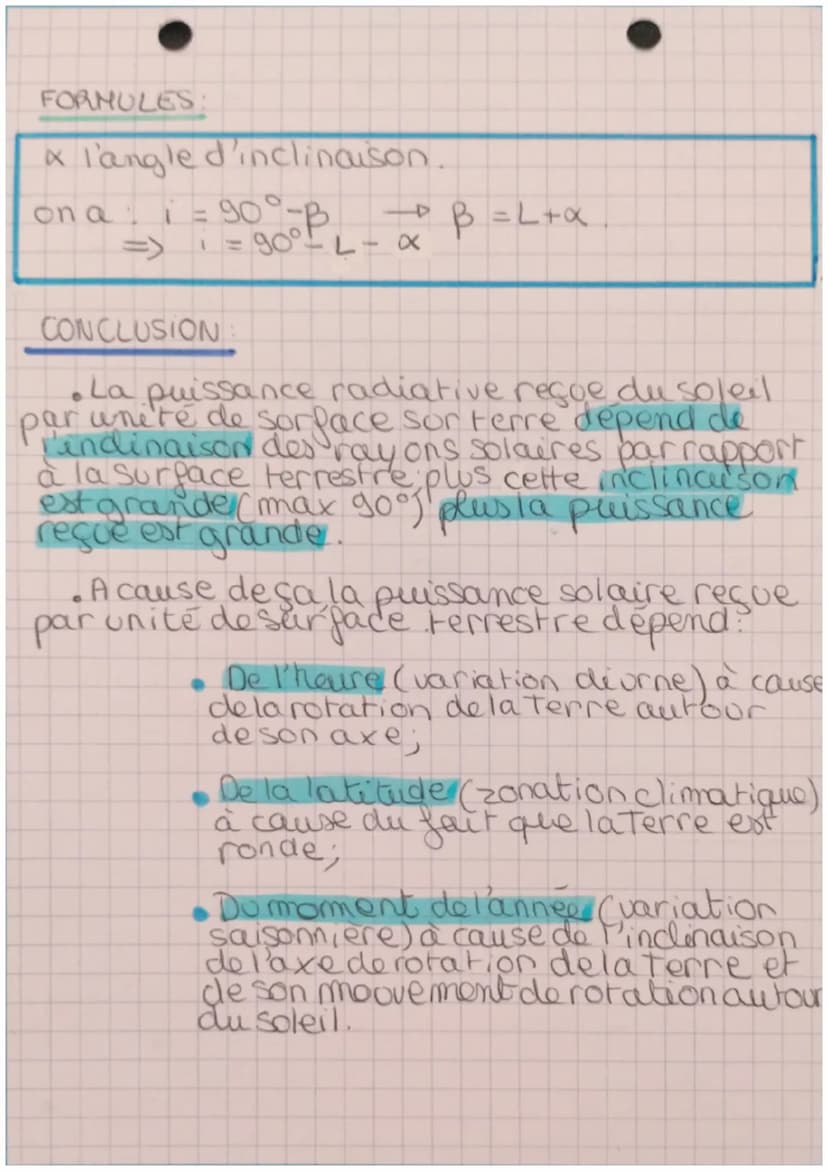 FORMULES:
α l'angle d'inclinaison.
on a : i = 90°-β → β = L+α.
=> i = 90°- L - α
CONCLUSION:
. La puissance radiative reçue du soleil
par unité de surface sur terre dépend de
l'inclinaison des rayons solaires par rapport
à la surface terrestre; plus cette inclinaison
est grande (max 90°) plus la puissance
reçue est grande.
. A cause de ça la puissance solaire reçue
par unité de surface terrestre dépend:
• De l'heure (variation diurne) à cause
de la rotation de la Terre autour
de son axe;
• De la latitude (zonation climatique)
à cause du fait que la Terre est
ronde;
• Du moment de l'année (variation
saisonnière) à cause de l'inclinaison
de l'axe de rotation de la Terre et
de son moovement de rotation autour
du soleil.